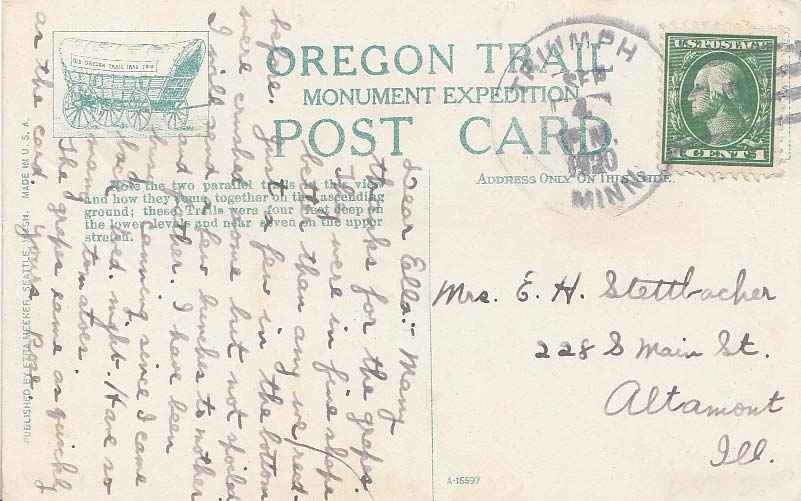 OLD OREGON TRAIL 1852 1906
OREGON TRAIL
MONUMENT EXPEDITION
POST CARD
ADDRESS ONLY ON THIS SIDE
TRIUMPH
SEP
4
1920
MINN.
U.S. POSTAGE
1 CENT 1
Note the two parallel trails in this view
and how they come together on the ascending
ground; these Trails were four feet deep on
the lower levels and near seven on the upper
stretch.
Dear Ella:- Many
thanks for the grapes.
They were in fine shape
better than any we red-
Just a few in the bottom
before.
were crushed some but not spoiled
I will send a few bunches to mother
and father. I have been
busy canning since I came
back Wed. night. Have so
many tomatoes.
The grapes came as quickly
as the card.
Yours Rose.
Mrs. E. H. Stettbacher
228 S Main St.
Altamont
Ill.
PUBLISHED BY EZRA MEEKER, SEATTLE, WASH. MADE IN U. S. A.
A-15597